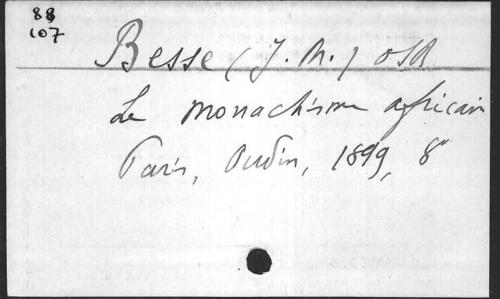 88
107
Besse (J. M.) OSB
Le monachisme africain
Paris, Oudin, 1899, 8°